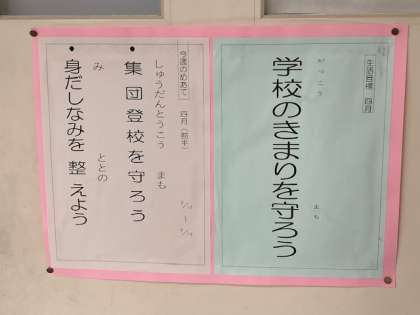 生活目標 四月
学校のきまりを守ろう
がっこう
まも
今週のめあて 四月(前半)
しゅうだんとうこう まも
・集団登校を守ろう
み ととの
・身だしなみを整えよう